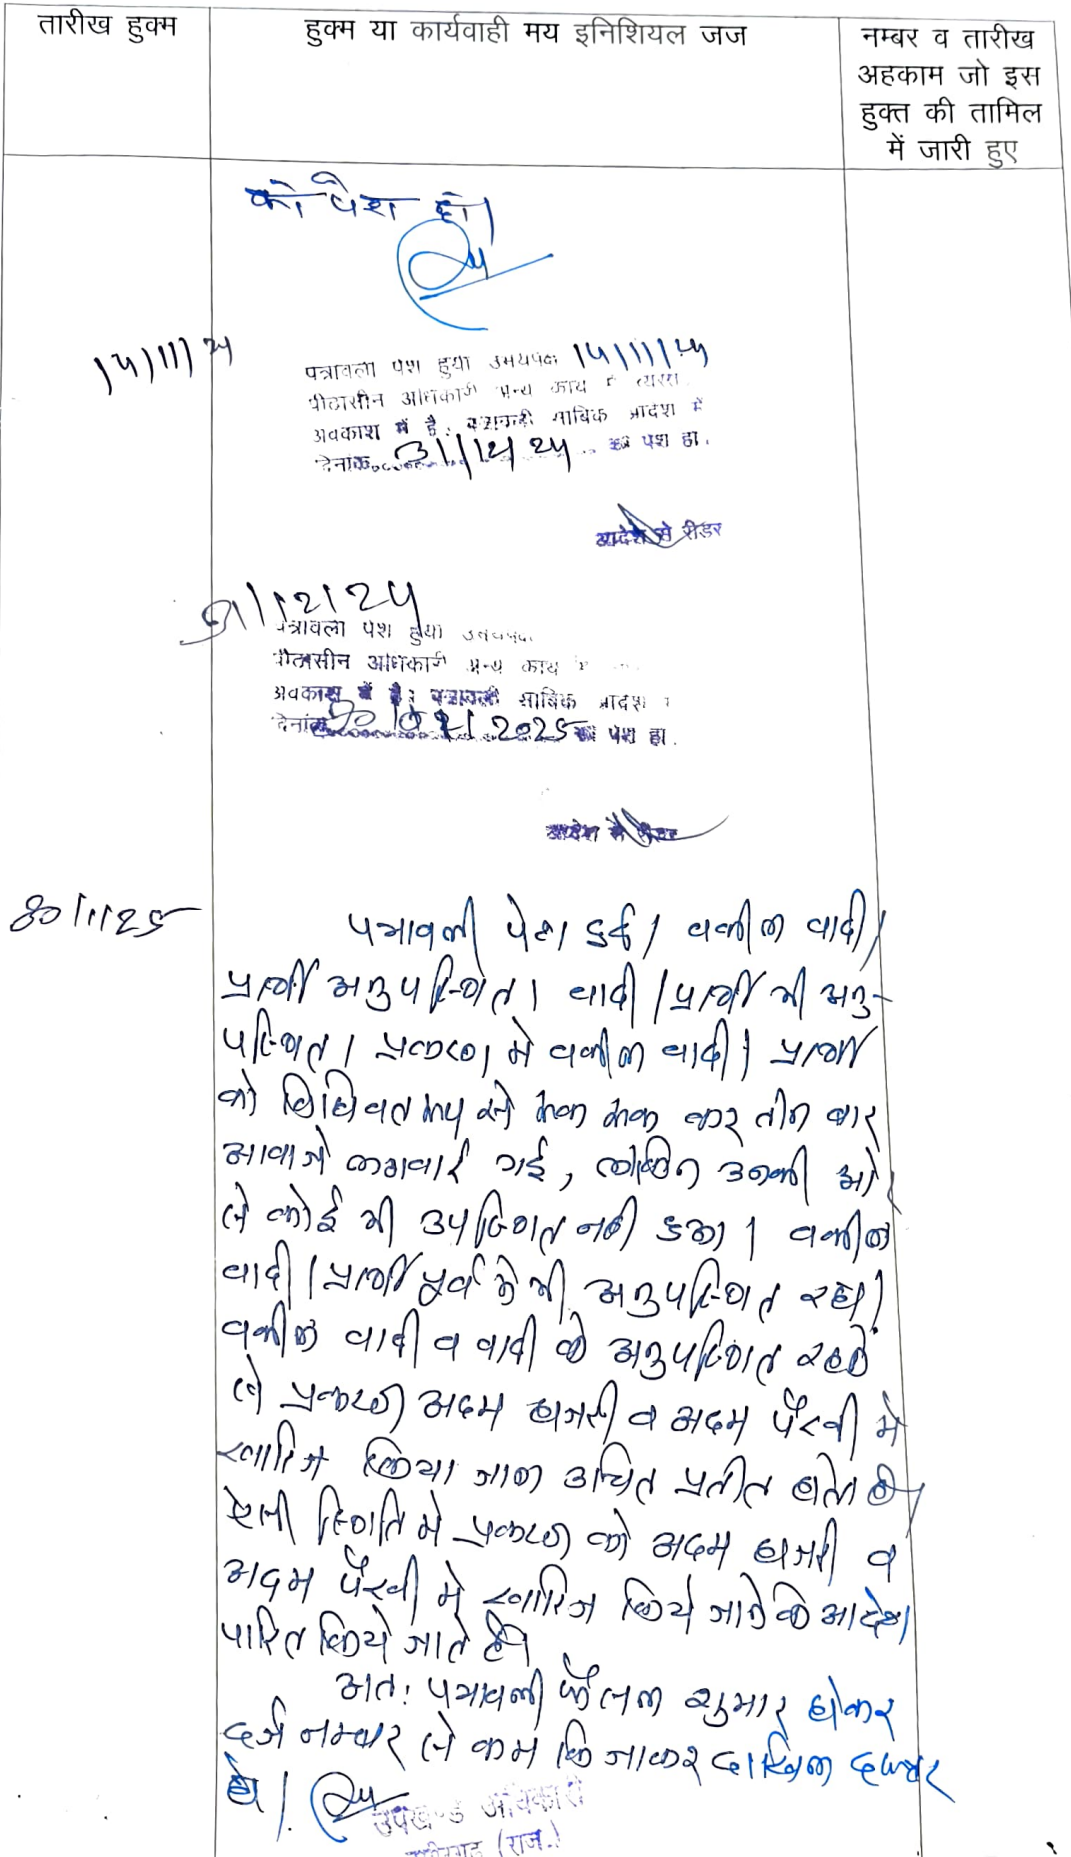 तारीख हुक्म
हुक्म या कार्यवाही मय इनिशियल जज
नम्बर व तारीख
अहकाम जो इस
हुक्त की तामिल
में जारी हुए
को पेश हो।
14/11/24
पत्रावली पेश हुयी उभयपक्ष 14/11/24
पीठासीन अधिकारी अन्य कार्य में व्यस्त
अवकाश में है। पत्रावली साबिक आदेश में
दिनांक 31/12/24 को पेश हो.
आदेश से रीडर
31/12/24
पत्रावली पेश हुयी उभयपक्ष
पीठासीन अधिकारी अन्य कार्य में
अवकाश में है। पत्रावली साबिक आदेश
दिनांक 2025 को पेश हो.
आदेश से रीडर
30/1/25
पत्रावली पेश हुई। वकील वादी/
प्रार्थी अनुपस्थित। वादी/प्रार्थी भी अनु-
पस्थित। प्रकरण में वकील वादी/प्रार्थी
को विधिवत रूप से एक एक कर तीन बार
आवाजे लगवाई गई, लेकिन उनकी ओर
से कोई भी उपस्थित नही हुआ। वकील
वादी/प्रार्थी पूर्व में भी अनुपस्थित रहा।
वकील वादी व वादी के अनुपस्थित रहने
से प्रकरण अदम हाजरी व अदम पैरवी में
खारिज किया जाना उचित प्रतीत होता है।
ऐसी स्थिति में प्रकरण को अदम हाजरी व
अदम पैरवी में खारिज किये जाने के आदेश
पारित किये जाते है।
अतः पत्रावली फैसल शुमार होकर
दर्ज नम्बर से कम कि जाकर दाखिल दफ्तर
हो।
उपखण्ड अधिकारी
(राज.)